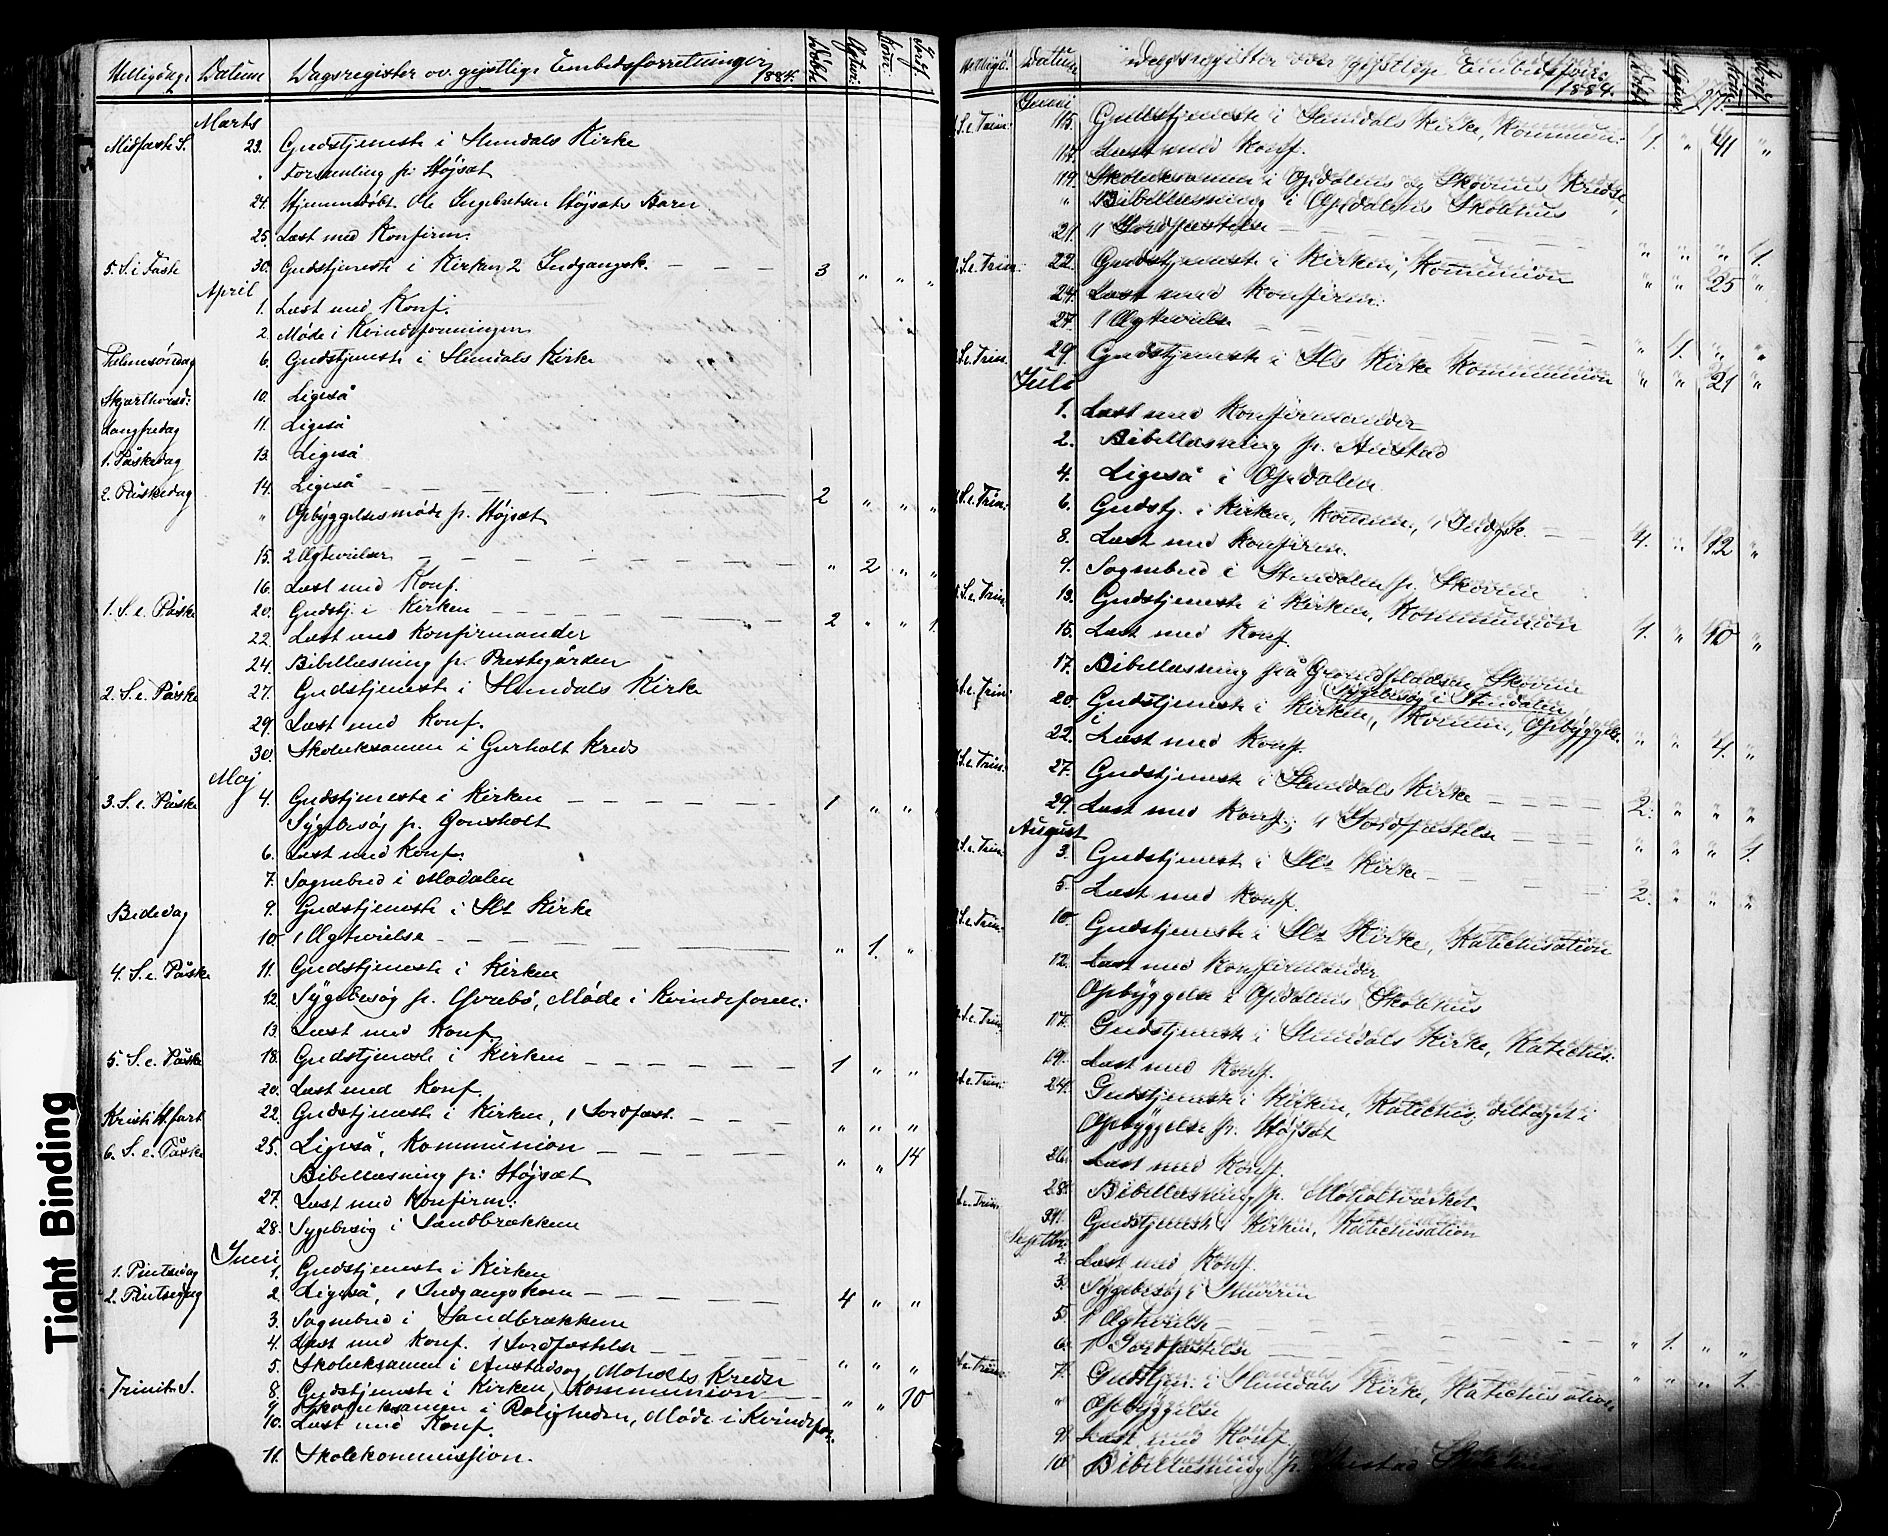 Helligdag. Datum Dagsregister ov. gejstlige Embedsforretninger 1884. Døbte Ægtevi: Konf: Jordf.
Marts
Midfaste S. 23. Gudstjeneste i Slemdals Kirke
" Forsamling på Højsæt
24. Hjemmedøbt Ole Ingebretsen Højsæts Barn
25. Læst med Konfirm.
5. S. i Faste 30. Gudstjeneste i Kirken, 2 Indgangsk. — — — 3 " " "
April
1. Læst med Konf.
2. Møde i Kvindeforeningen
Palmesøndag 6. Gudstjeneste i Slemdals Kirke
Skjærthorsd: 10. Ligeså
Langfredag 11. Ligeså
1. Påskedag 13. Ligeså
2. Påskedag 14. Ligeså — — — 2 " " "
" Opbyggelsesmøde på Højsæt
15. 2 Ægtevielser — — — " 2 " "
16. Læst med Konf.
1. S. e. Påske 20. Gudstj. i Kirken — — — 2 " " 1.
22. Læst med Konfirmander
24. Bibellæsning på Prestegården
2. S. e. Påske 27. Gudstjeneste i Slemdals Kirke
29. Læst med Konf.
30. Skoleksamen i Gurholt Kreds
Maj
3. S. e. Påske 4. Gudstjeneste i Kirken — — — 1 " " "
Sygebesøg på Gonsholt
6. Læst med Konf.
7. Sognebud i Modalen
Bededag 9. Gudstjeneste i Sl: Kirke
10. 1 Ægtevielse — — — " 1. "
4. S. e. Påske 11. Gudstjeneste i Kirken
12. Sygebesøg på Øvrebø, Møde i Kvindeforen:
13. Læst med Konf.
5. S. e. Påske 18. Gudstjeneste i Kirken — — — 1 " "
20. Læst med Konf.
Kristi H.fart 22. Gudstjeneste i Kirken, 1 Jordfæst. — — " " "
6. S. e. Påske 25. Ligeså, Kommunion — — — " " 14
Bibellæsning på Højsæt
27. Læst med Konfirm:
28. Sygebesøg i Sandbrækkene
Juni
1. Pintsedag 1. Gudstjeneste i Kirken
2. Pintsedag 2. Ligeså, 1 Indgangskom — — — 4 " "
3. Sognebud i Sandbrækkene
4. Læst med Konf. 1 Jordfæstelse — — — " " "
5. Skoleksamen i Austad og Moholts Kredse
Trinit. S. 8. Gudstjeneste i Kirken, Kommunion — — " " 10
9 Skoleksamen i Roligheden, Møde i Kvindefor.
10. Læst med Konf.
11. Skolekommission.
Helligd. Datum Dagsregister over gejstlige Embedsforr. 1884. Døbte Ægtevi 277.
Juni
S. e. Trin: 15. Gudstjeneste i Slemdals Kirke, Kommun: 1. " 41 "
17. Læst med Konf.
19. Skoleksamen i Opdalens og Skovens Kredse
" Bibellæsning i Opdalens Skolehus
21. 1 Jordfæstelse — — — " " " 1.
S. e. Trin: 22. Gudstjeneste i Kirken, Kommunion " " 25 "
24. Læst med Konfirm:
27. 1 Ægtevielse — — — " 1. " "
S. e. Trin: 29 Gudstjeneste i Sls Kirke Kommunion " " 21 "
Juli
1. Læst med Konfirmander
2. Bibellæsning på Austad
4. Ligeså i Opdalen
S. e. Trin: 6. Gudstj. i Kirken, Kommun, 1 Indgsk. — — 4. " 12 "
8. Læst med Konfirm.
9. Sognebud i Stendalen på Skoven
S. e. Trin: 13. Gudstjeneste i Kirken, Kommunion 1. " 10 "
15. Læst med Konf.
17. Bibellæsning på Grondpladsen Skoven
Sygebesøg i Stendalen
S. e. Trin: 20. Gudstjeneste i Kirken, Kommun, Opbyggelse " " 4. "
22. Læst med Konf.
S. e. Trin: 27. Gudstjeneste i Slemdals Kirke — — — 2. " " "
29. Læst med Konf; 1 Jordfæstelse — — " " " 1.
August
S. e. Trin: 3. Gudstjeneste i Sls Kirke — — — 2. " " "
5. Læst med Konf.
S. e. Trin: 10. Gudstjeneste i Sls Kirke, Katechisation
12. Læst med Konfirmander
Opbyggelse i Opdalens Skolehus
S. e. Trin: 17. Gudstjeneste i Slemdals Kirke, Katechis:
19. Læst med Konf.
S. e. Trin: 24. Gudstjeneste i Kirken, Katechis, deltaget i
Opbyggelse på Højsæt
26. Læst med Konf.
28. Bibellæsning på Moholtværket.
S. e. Trin: 31. Gudstjeneste i Kirken, Katechisation
Septbr:
2. Læst med Konf.
3. Sygebesøg i Snurren
5. 1 Ægtevielse — — — " 1. " "
6. 1 Jordfæstelse — — — " " " 1.
S. e. Trin: 7. Gudstjen. i Slemdals Kirke, Katechisation
" Opbyggelse
9. Læst med Konf.
10. Bibellæsning på Austad
Tight Binding